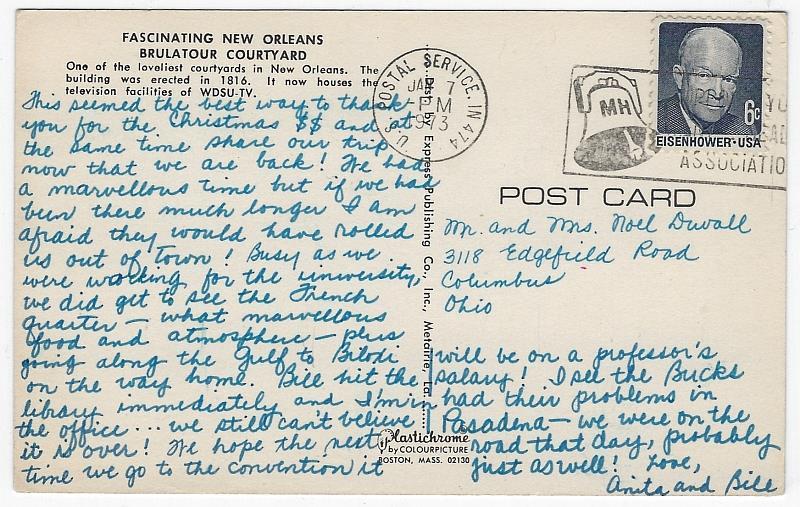 FASCINATING NEW ORLEANS
BRULATOUR COURTYARD
One of the loveliest courtyards in New Orleans. The
building was erected in 1816. It now houses the
television facilities of WDSU-TV.
This seemed the best way to thank
you for the Christmas $$ and at
the same time share our trip
now that we are back! We had
a marvellous time but if we had
been there much longer I am
afraid they would have rolled
us out of town! Busy as we
were working for the university,
we did get to see the French
quarter — what marvellous
food and atmosphere — plus
going along the Gulf to Biloxi
on the way home. Bill hit the
library immediately and I'm in
the office... we still can't believe
it is over! We hope the next
time we go to the convention it
will be on a professor's
salary! I see the Bucks
had their problems in
Pasadena — we were on the
road that day, probably
just as well! Love,
Anita and Bill
Dist. by Express Publishing Co., Inc., Metairie, La.
Plastichrome
by COLOURPICTURE
BOSTON, MASS. 02130
U.S. POSTAL SERVICE, IN 474
JAN 7
PM
1973
MH
ASSOCIATIO
6c
EISENHOWER·USA
POST CARD
Mr. and Mrs. Noel Duvall
3118 Edgefield Road
Columbus
Ohio